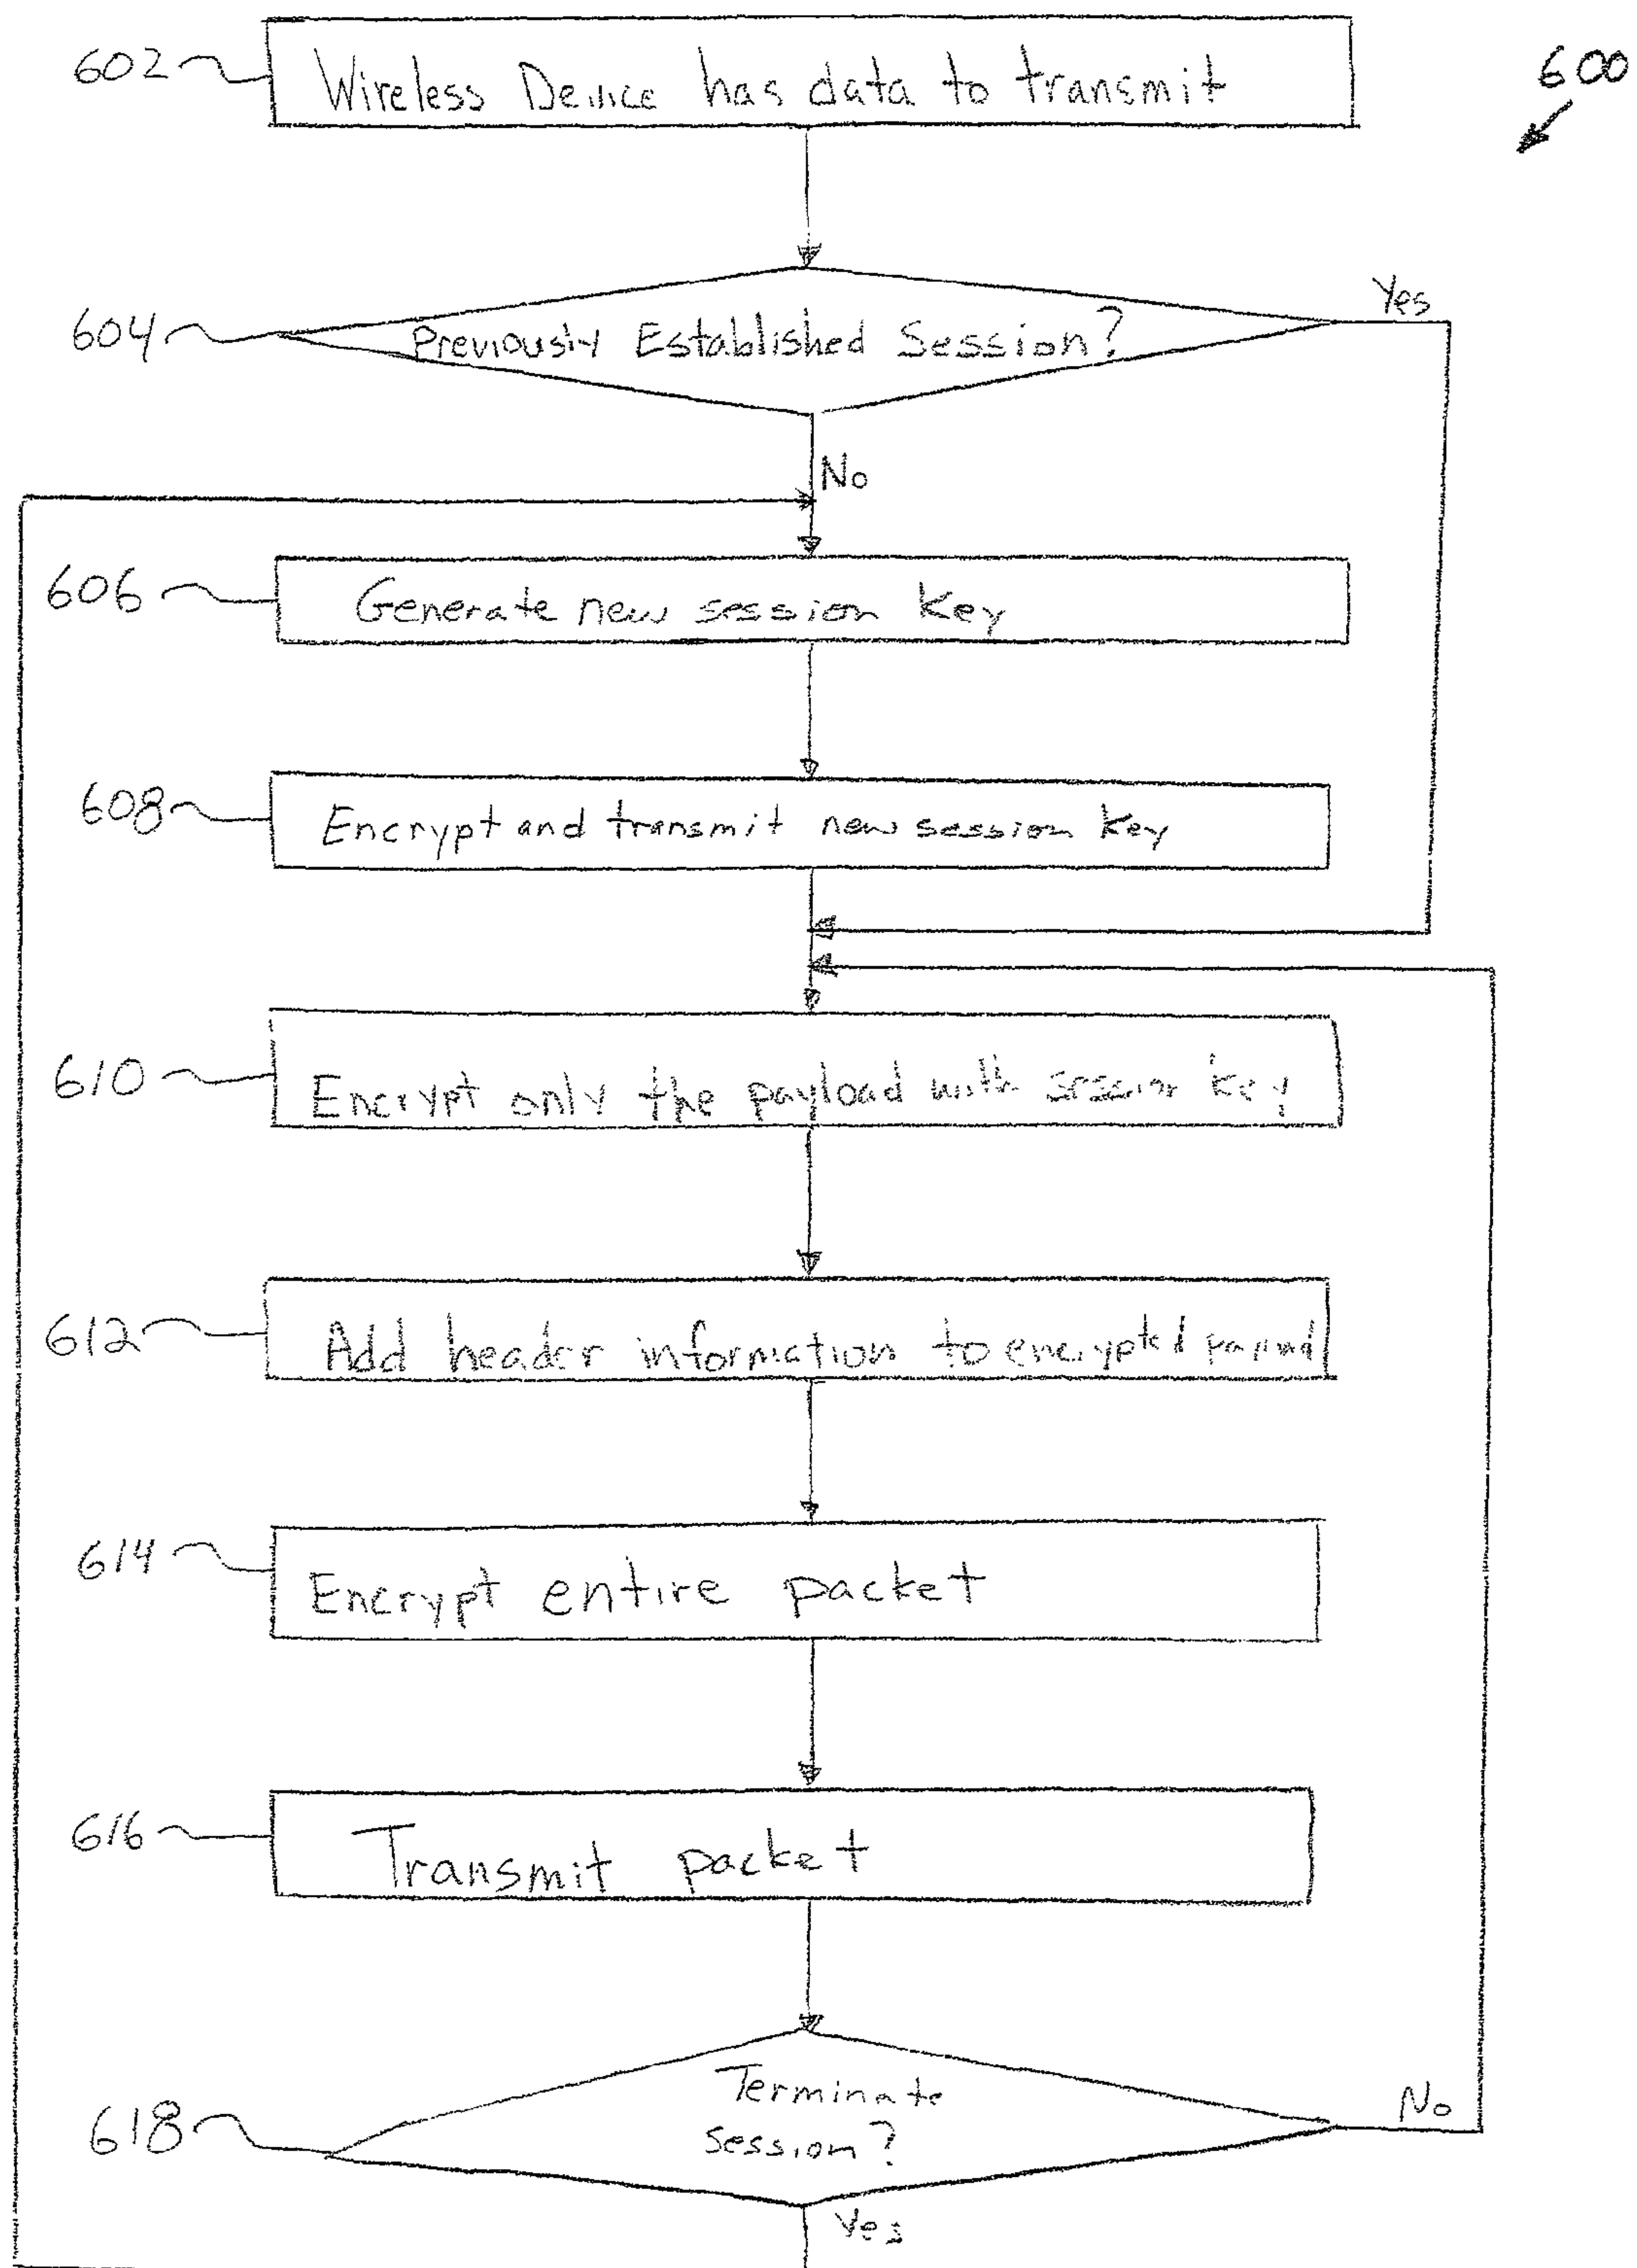 602
Wireless Device has data to transmit
600
604
Previously Established Session?
Yes
No
606
Generate new session Key
608
Encrypt and transmit new session Key
610
Encrypt only the payload with session key
612
Add header information to encrypted payload
614
Encrypt entire packet
616
Transmit packet
618
Terminate
session?
No
Yes